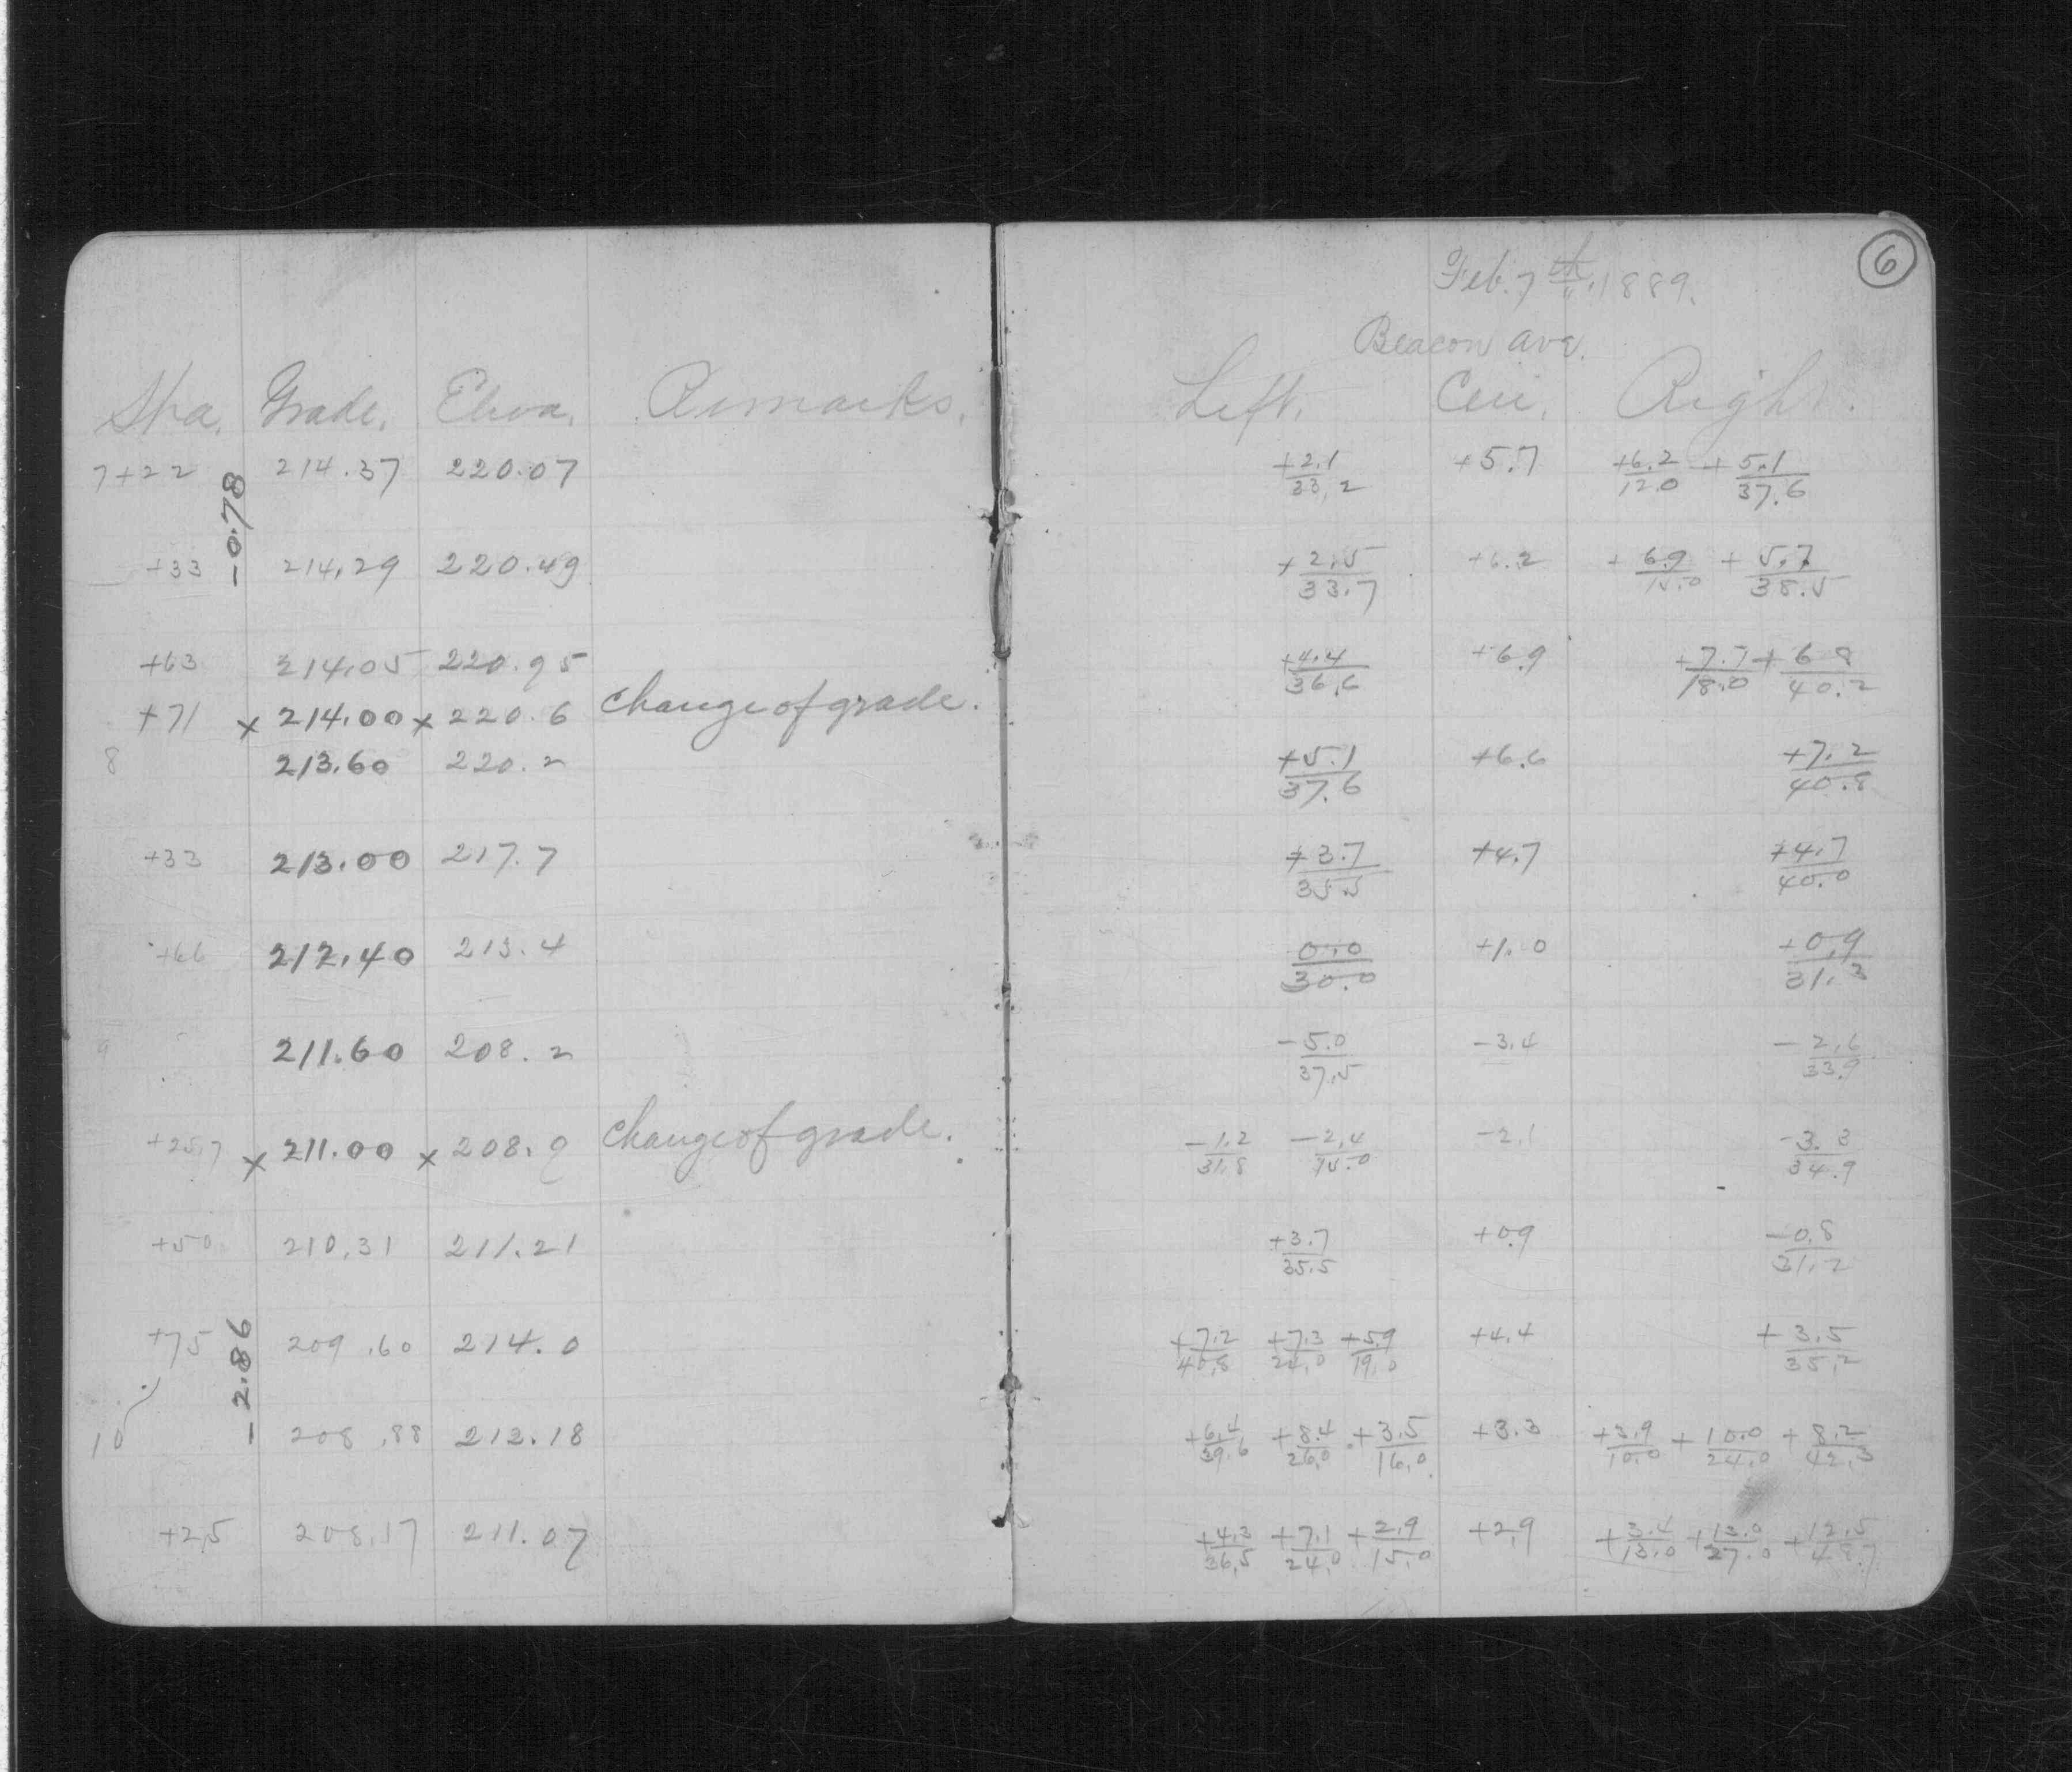 6
Feb. 7th, 1889.
Beacon ave.
Sta. Grade. Eleva. Remarks. Left. Cen. Right.
7+22 214.37 220.07 +2.1/33.2 +5.7 +6.2/12.0 +5.1/37.6
-0.78
+33 214.29 220.49 +2.5/33.7 +6.2 +6.9/15.0 +5.7/38.5
+63 214.05 220.95 +4.4/36.6 +6.9 +7.7/18.0 +6.8/40.2
+71 x 214.00 x 220.6 Change of grade.
8 213.60 220.2 +5.1/37.6 +6.6 +7.2/40.8
+33 213.00 217.7 +3.7/35.5 +4.7 +4.7/40.0
+66 212.40 213.4 0.0/30.0 +1.0 +0.9/31.3
9 211.60 208.2 -5.0/37.5 -3.4 -2.6/33.9
+25.7 x 211.00 x 208.9 Change of grade. -1.2/31.8 -2.4/15.0 -2.1 -3.3/34.9
+50 210.31 211.21 +3.7/35.5 +0.9 -0.8/31.2
+75 209.60 214.0 +7.2/40.8 +7.3/ +5.9/19.0 +4.4 +3.5/35.2
-2.86
10 208.88 212.18 +6.4/39.6 +8.4/26.0 +3.5/16.0 +3.3 +3.9/10.0 +10.0/24.0 +8.2/42.3
+25 208.17 211.07 +4.3/36.5 +7.1/24.0 +2.9/15.0 +2.9 +3.4/13.0 +13.0/27.0 +12.5/48.7